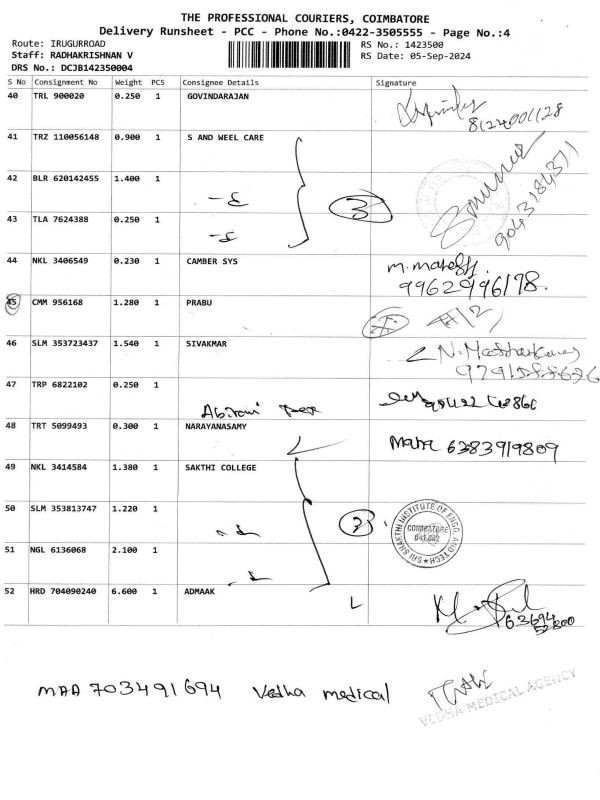 THE PROFESSIONAL COURIERS, COIMBATORE
Delivery Runsheet - PCC - Phone No.:0422-3505555 - Page No.:4
Route: IRUGURROAD
Staff: RADHAKRISHNAN V
DRS No.: DCJB142350004
RS No.: 1423500
RS Date: 05-Sep-2024
S No Consignment No Weight PCS Consignee Details Signature
40 TRL 900020 0.250 1 GOVINDARAJAN
8124001128
41 TRZ 110056148 0.900 1 S AND WEEL CARE
42 BLR 620142455 1.400 1
3
9043184371
43 TLA 7624388 0.250 1
44 NKL 3406549 0.230 1 CAMBER SYS
9962996178
45 CMM 956168 1.280 1 PRABU
46 SLM 353723437 1.540 1 SIVAKMAR
47 TRP 6822102 0.250 1
Abirami
48 TRT 5099493 0.300 1 NARAYANASAMY
6383919809
49 NKL 3414584 1.380 1 SAKTHI COLLEGE
50 SLM 353813747 1.220 1
3
SRI SHAKTHI INSTITUTE OF ENGG. AND TECH
COIMBATORE
641 062
51 NGL 6136068 2.100 1
52 HRD 704090240 6.600 1 ADMAAK
L
MAA 703491694 Vedha medical
VEDHA MEDICAL AGENCY